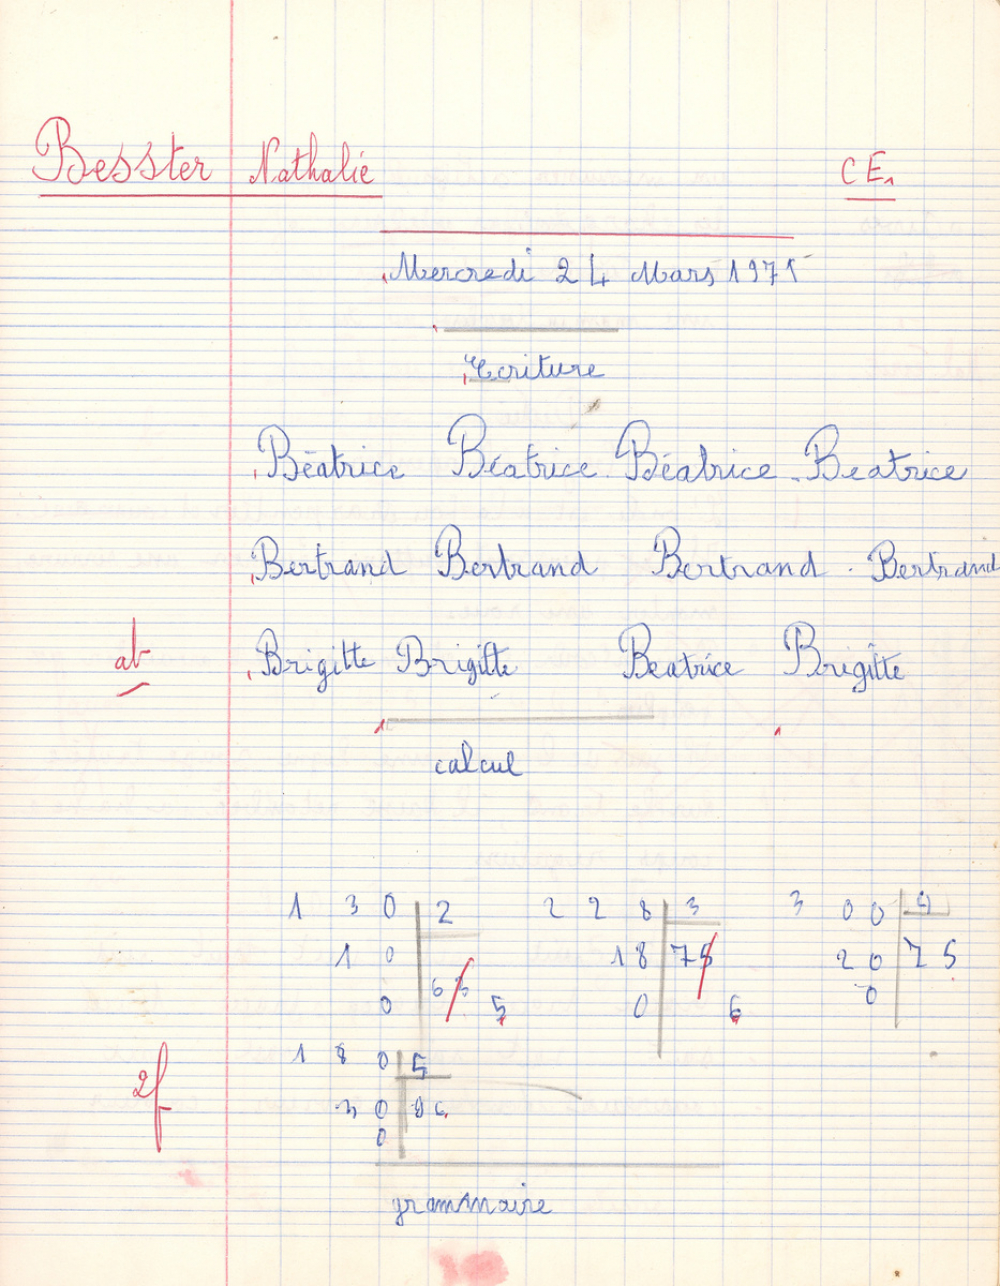 Besster Nathalie CE1
Mercredi 24 Mars 1971
Ecriture
Béatrice Béatrice Béatrice Beatrice
Bertrand Bertrand Bertrand Bertrand
ab Brigitte Brigitte Beatrice Brigitte
calcul
1 3 0 2 2 2 8 3 3 0 0 4
1 0 1 8 7 2 0 7 5
0 6 5 0 6 0
1 8 0 5
2f 3 0 6
0
grammaire